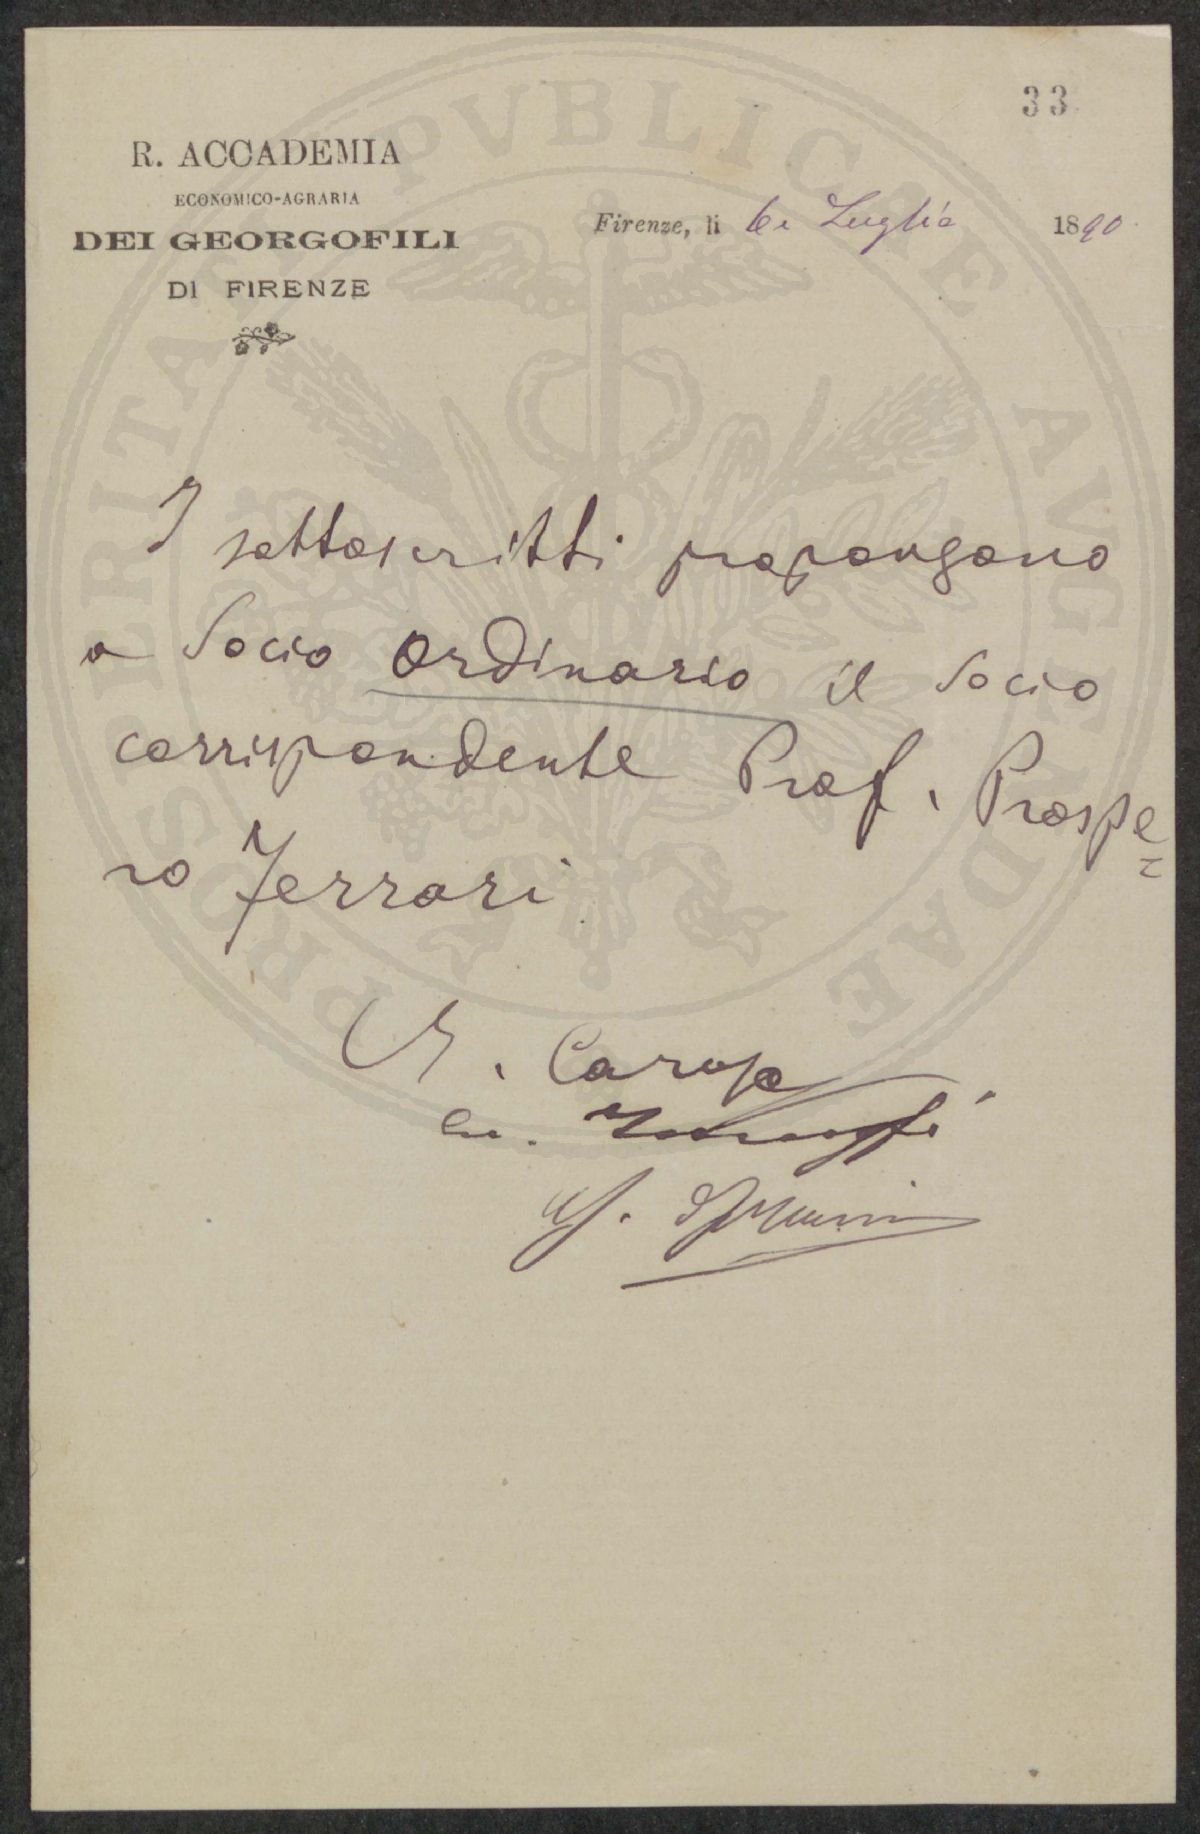 33
R. ACCADEMIA
ECONOMICO-AGRARIA
DEI GEORGOFILI
DI FIRENZE
Firenze, li 6 Luglio 1890
I sottoscritti propongono
a Socio Ordinario il Socio
corrispondente Prof. Prospe=
ro Ferrari
V. Caruso
PROSPERITATI PVBLICAE AVGENDAE